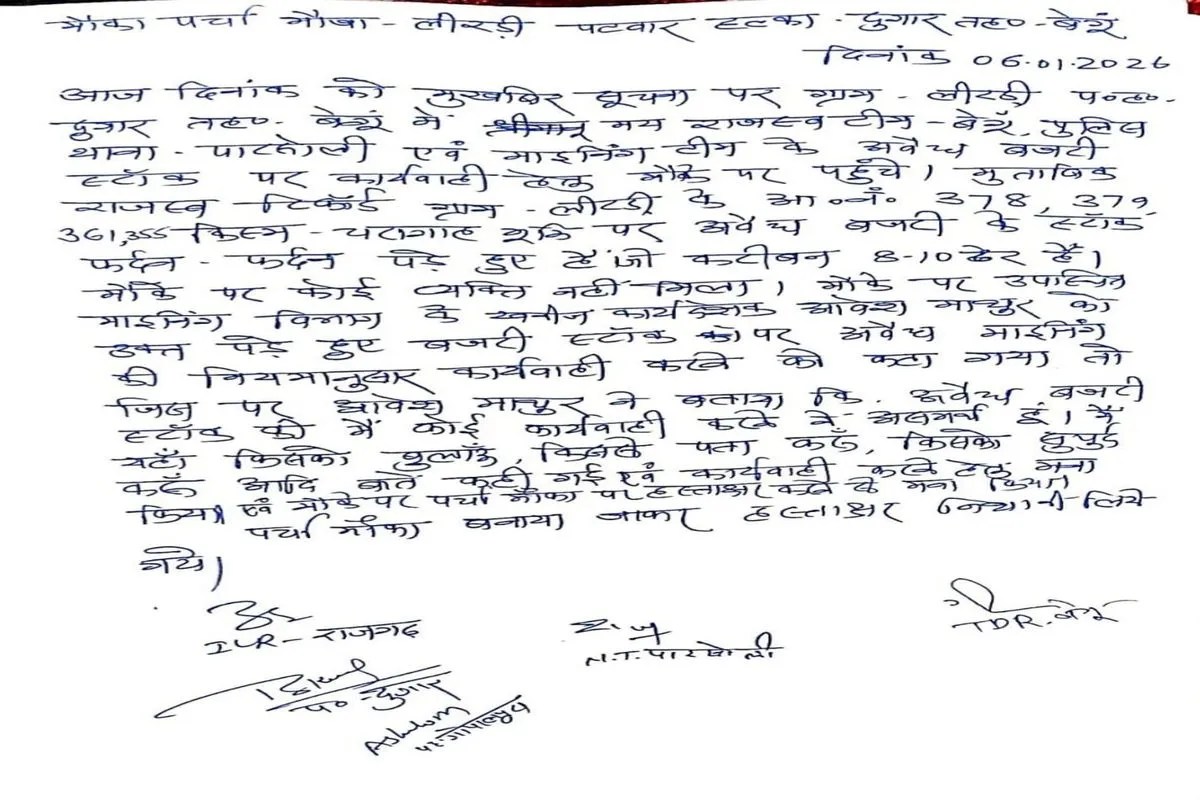 मौका पर्चा मौजा - लीरडी पटवार हल्का - दुगार तह० - बेगूं
दिनांक 06.01.2026
आज दिनांक को मुखबिर सूचना पर ग्राम - लीरडी प०ह०-
दुगार तह०- बेगूं में मय राजस्व टीम - बेगूं, पुलिस
थाना - पारसोली एवं माइनिंग टीम के अवैध बजरी
स्टॉक पर कार्यवाही हेतु मौके पर पहुँचे। मुताबिक
राजस्व रिकॉर्ड ग्राम - लीरडी के आ०नं० 378, 379,
361,355 किस्म - चरागाह भूमि पर अवैध बजरी के स्टॉक
फर्दन - फर्दन पड़े हुए हैं जो करीबन 8-10 ढेर हैं।
मौके पर कोई व्यक्ति नहीं मिला। मौके पर उपस्थित
माइनिंग विभाग के खनीज कार्यदेशक आवेश माथुर को
उक्त पड़े हुए बजरी स्टॉक पर अवैध माइनिंग
की नियमानुसार कार्यवाही करने को कहा गया तो
जिस पर आवेश माथुर ने बताया कि अवैध बजरी
स्टॉक की मैं कोई कार्यवाही करने में असमर्थ हूं। मैं
यहाँ किसको बुलाऊँ, किससे पता करूँ, किसको सुपुर्द
करूँ आदि बातें कही गई एवं कार्यवाही करने हेतु मना
किया एवं मौके पर पर्चा मौका पर हस्ताक्षर करने से मना किया।
पर्चा मौका बनाया जाकर हस्ताक्षर लिये
गये।
ILR - राजगढ
N.T. पारसोली
TDR. बेगूं
प० - दुगार
Ashkom
प. गोपालपुरा